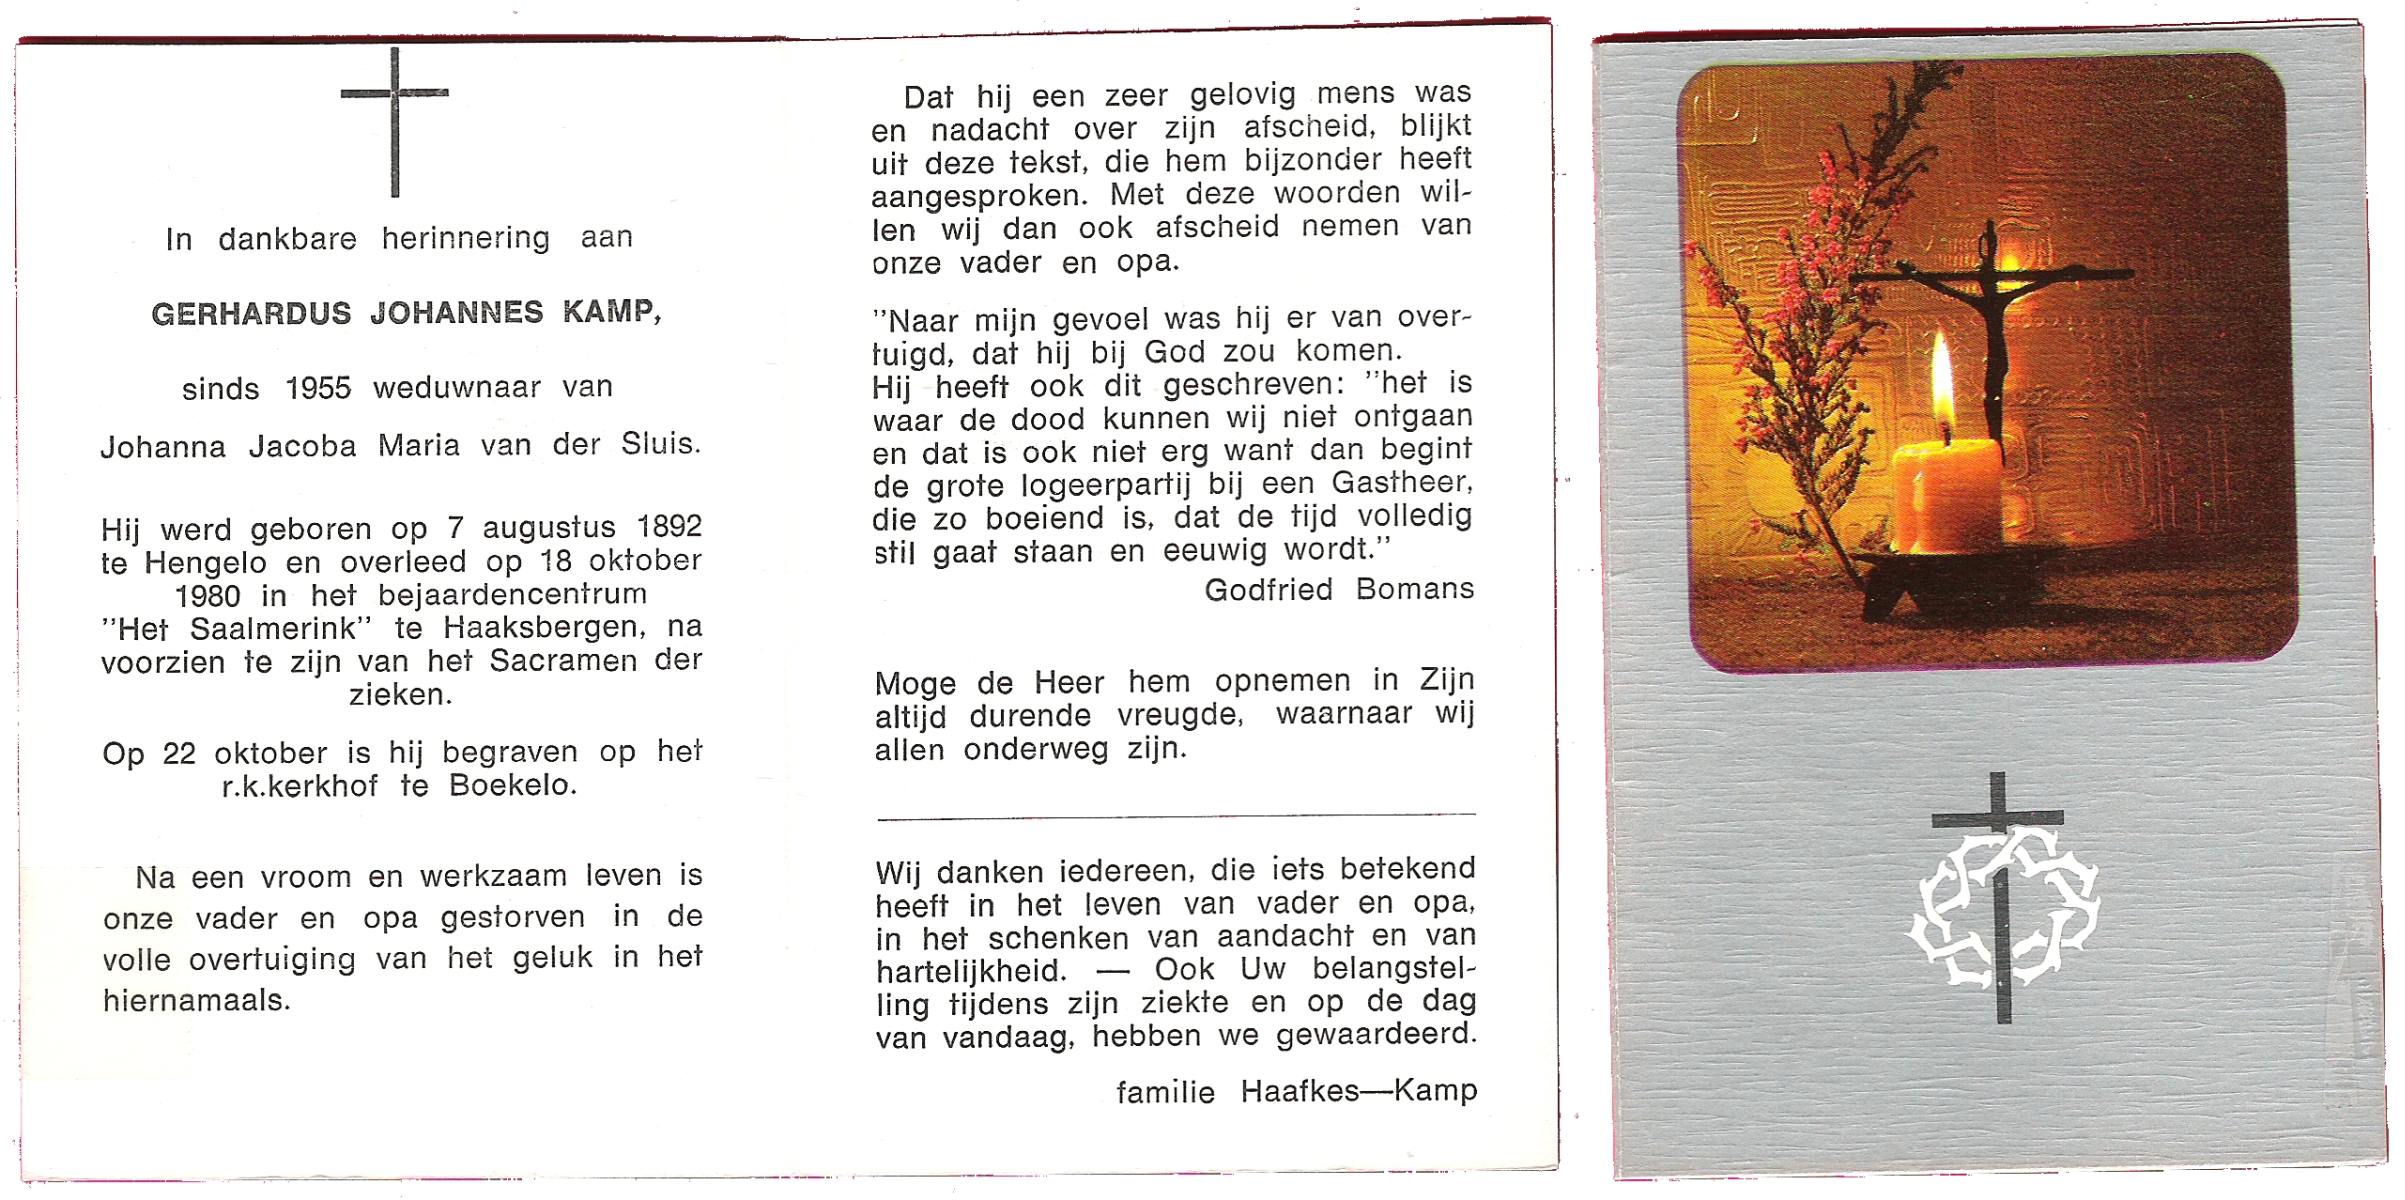 In dankbare herinnering aan
GERHARDUS JOHANNES KAMP,
sinds 1955 weduwnaar van
Johanna Jacoba Maria van der Sluis.
Hij werd geboren op 7 augustus 1892
te Hengelo en overleed op 18 oktober
1980 in het bejaardencentrum
"Het Saalmerink" te Haaksbergen, na
voorzien te zijn van het Sacramen der
zieken.
Op 22 oktober is hij begraven op het
r.k.kerkhof te Boekelo.
Na een vroom en werkzaam leven is
onze vader en opa gestorven in de
volle overtuiging van het geluk in het
hiernamaals.
Dat hij een zeer gelovig mens was
en nadacht over zijn afscheid, blijkt
uit deze tekst, die hem bijzonder heeft
aangesproken. Met deze woorden wil-
len wij dan ook afscheid nemen van
onze vader en opa.
"Naar mijn gevoel was hij er van over-
tuigd, dat hij bij God zou komen.
Hij heeft ook dit geschreven: "het is
waar de dood kunnen wij niet ontgaan
en dat is ook niet erg want dan begint
de grote logeerpartij bij een Gastheer,
die zo boeiend is, dat de tijd volledig
stil gaat staan en eeuwig wordt."
Godfried Bomans
Moge de Heer hem opnemen in Zijn
altijd durende vreugde, waarnaar wij
allen onderweg zijn.
Wij danken iedereen, die iets betekend
heeft in het leven van vader en opa,
in het schenken van aandacht en van
hartelijkheid. — Ook Uw belangstel-
ling tijdens zijn ziekte en op de dag
van vandaag, hebben we gewaardeerd.
familie Haafkes—Kamp